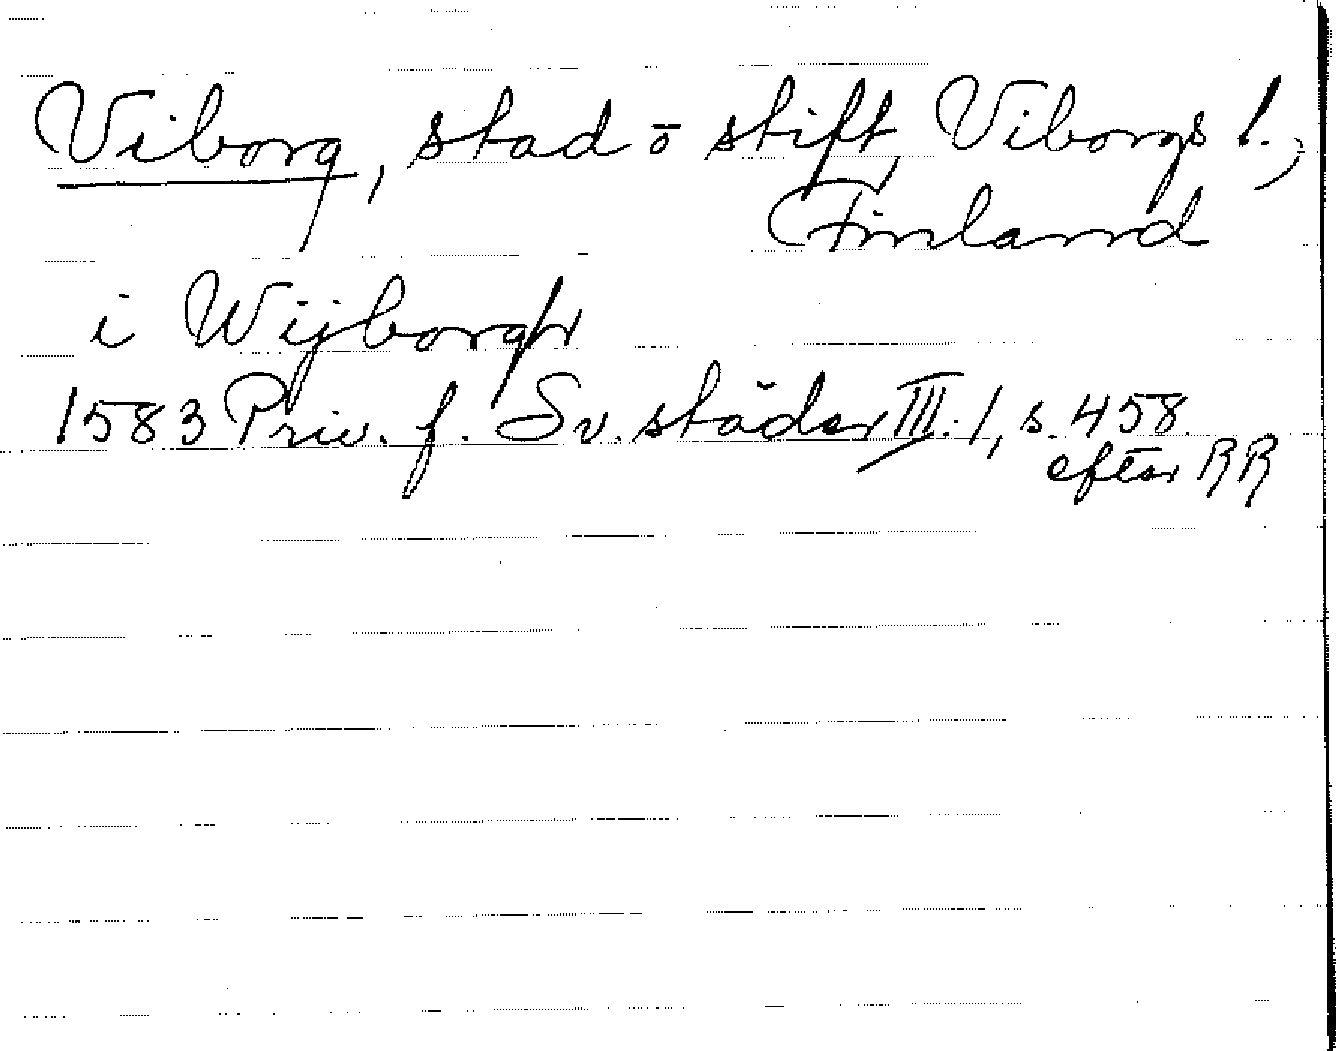 Viborg, stad o stift, Viborgs l.,
Finland
i Wijborgh
1583 Priv. f. Sv. städer III. 1, s. 458.
efter RR